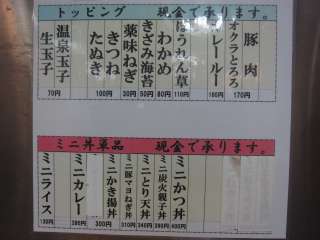 トッピング 現金で承ります。
豚肉
オクラとろろ
カレールー
ほうれん草
わかめ
きざみ海苔
薬味ねぎ
きつね
たぬき
温泉玉子
生玉子
70円
100円
30円
50円
80円
110円
170円
ミニ丼単品 現金で承ります。
ミニかつ丼
ミニ炭火親子丼
ミニとり天丼
ミニ豚マヨねぎ丼
ミニかき揚丼
ミニカレー
ミニライス
130円
300円
310円
340円
390円
400円